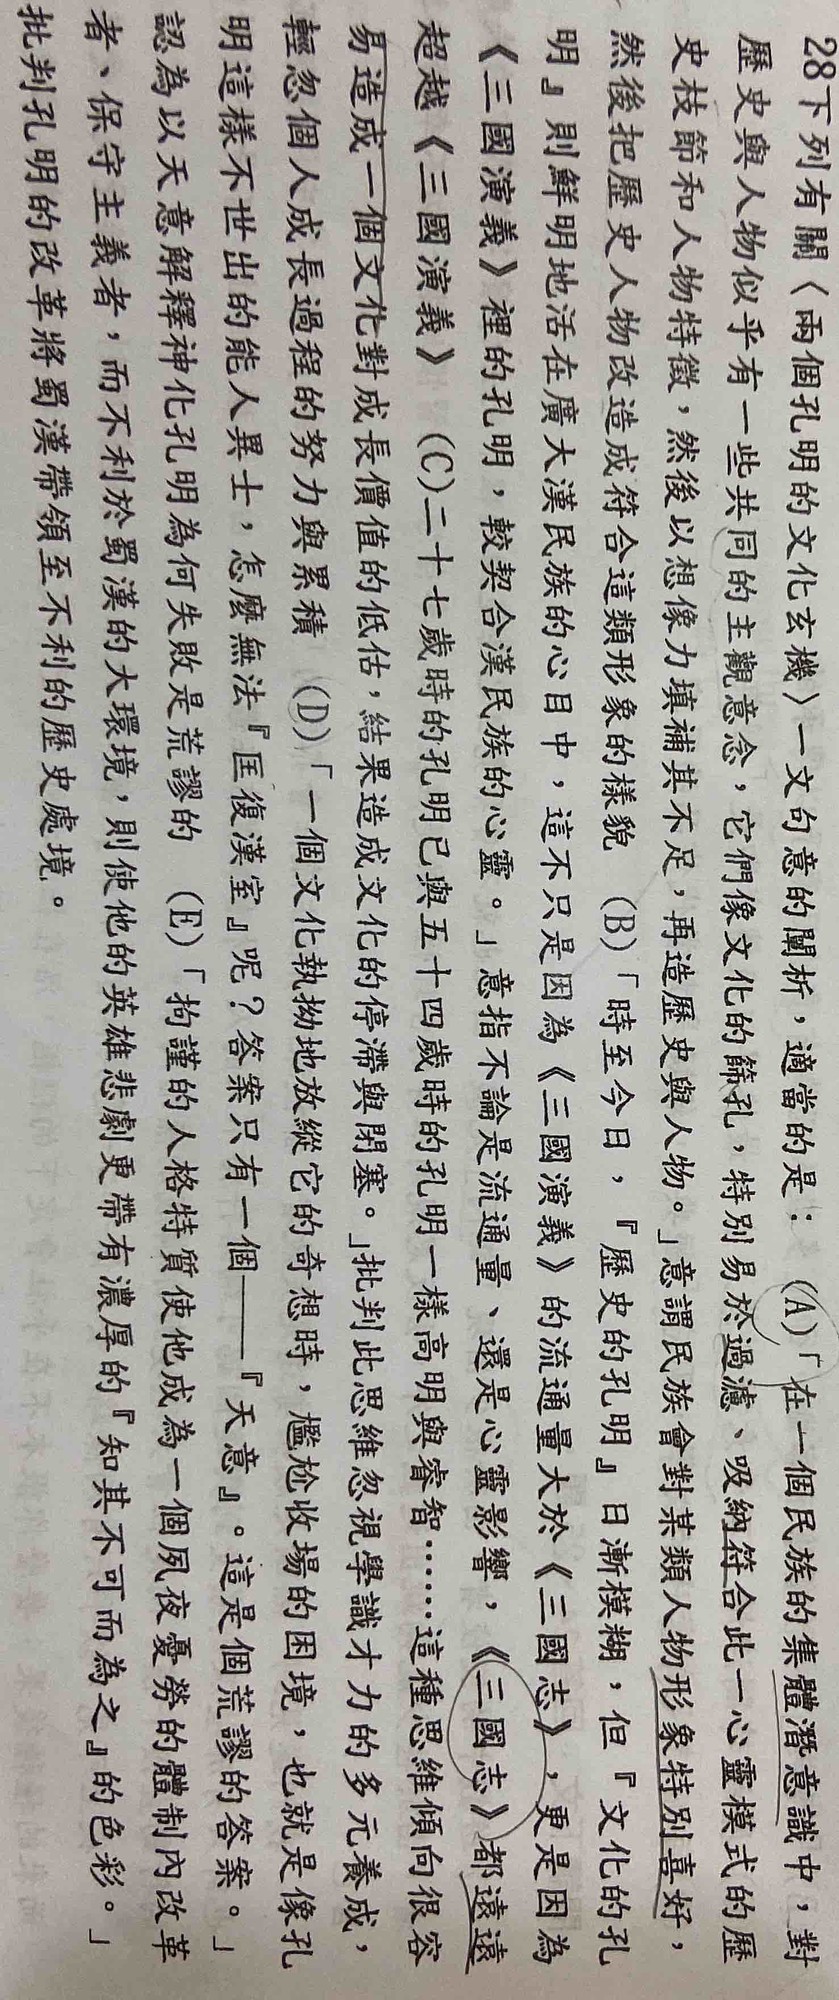 28下列有關〈兩個孔明的文化玄機〉一文句意的闡析，適當的是： (A)「在一個民族的集體潛意識中，對
歷史與人物似乎有一些共同的主觀意念，它們像文化的篩孔，特別易於過濾、吸納符合此一心靈模式的歷
史枝節和人物特徵，然後以想像力填補其不足，再造歷史與人物。」意謂民族會對某類人物形象特別喜好，
然後把歷史人物改造成符合這類形象的樣貌 (B)「時至今日，『歷史的孔明』日漸模糊，但『文化的孔
明』則鮮明地活在廣大漢民族的心目中，這不只是因為《三國演義》的流通量大於《三國志》，更是因為
《三國演義》裡的孔明，較契合漢民族的心靈。」意指不論是流通量、還是心靈影響，《三國志》都遠遠
超越《三國演義》 (C)二十七歲時的孔明已與五十四歲時的孔明一樣高明與睿智……這種思維傾向很容
易造成一個文化對成長價值的低估，結果造成文化的停滯與閉塞。」批判此思維忽視學識才力的多元養成，
輕忽個人成長過程的努力與累積 (D)「一個文化執拗地放縱它的奇想時，尷尬收場的困境，也就是像孔
明這樣不世出的能人異士，怎麼無法『匡復漢室』呢？答案只有一個——『天意』。這是個荒謬的答案。」
認為以天意解釋神化孔明為何失敗是荒謬的 (E)「拘謹的人格特質使他成為一個夙夜憂勞的體制內改革
者、保守主義者，而不利於蜀漢的大環境，則使他的英雄悲劇更帶有濃厚的『知其不可而為之』的色彩。」
批判孔明的改革將蜀漢帶領至不利的歷史處境。